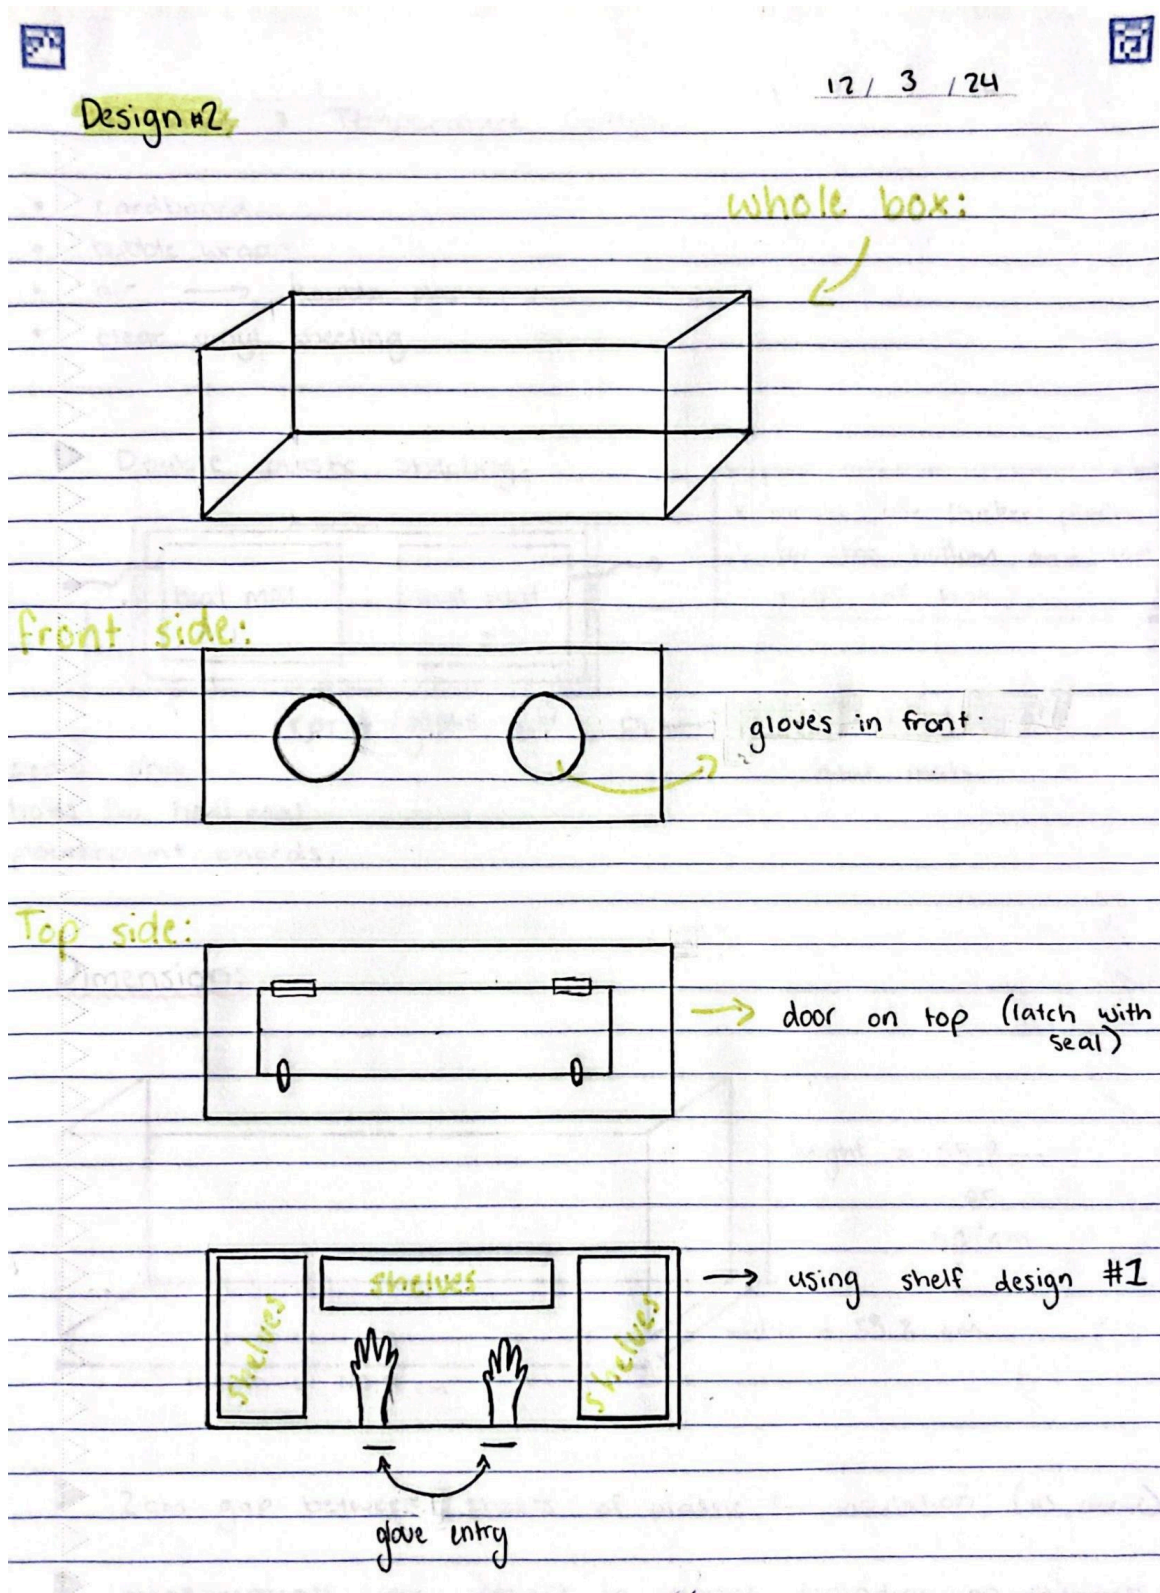 12 / 3 / 24
Design #2
whole box:
front side:
gloves in front.
Top side:
door on top (latch with
seal)
shelves
shelves
shelves
using shelf design #1
glove entry